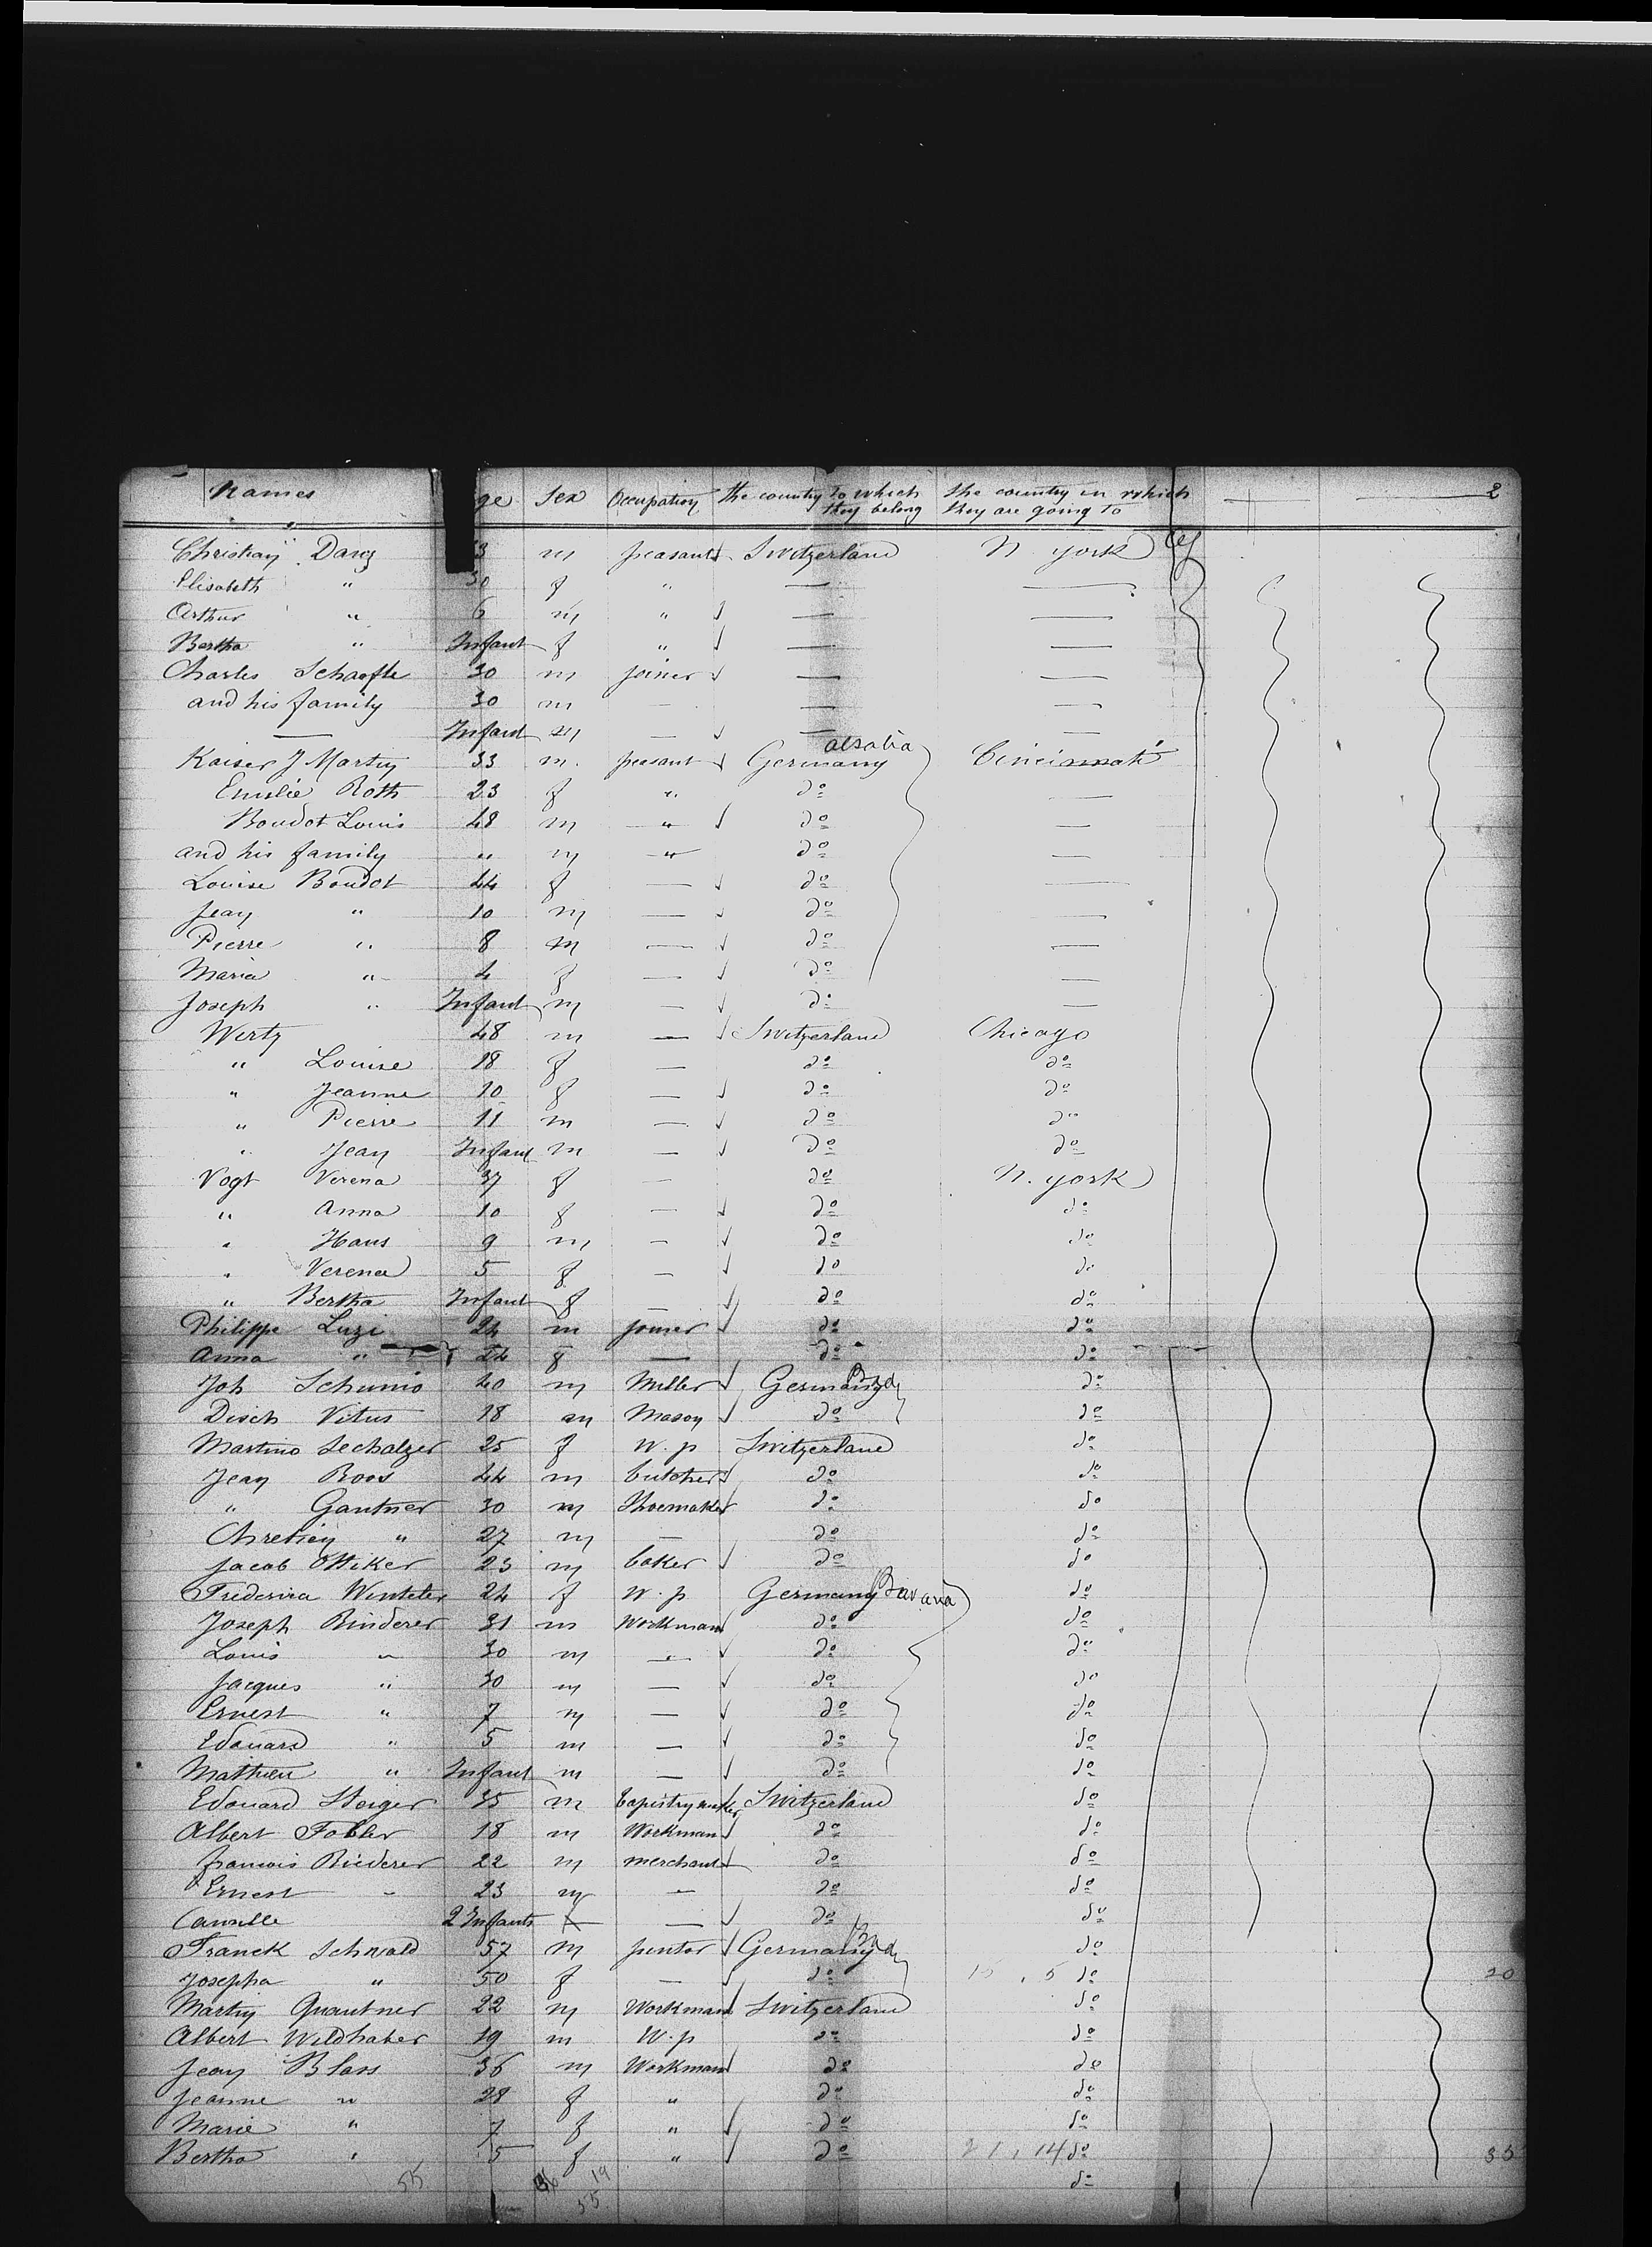 Names ge Sex Occupation the country to which they belong the country in which they are going to 2
Christian Dang 3 m peasant Switzerland N. york
Elisabeth " 30 f " — —
Arthur " 6 m " — —
Bertha " Infant f " — —
Charles Schaofle 30 m joiner — —
and his family 30 m — — —
— Infant m — — —
Kaiser J Martin 33 m. peasant Germany alsatia Cincinnati
Emilie Roth 23 f " do —
Boudot Louis 48 m " do —
and his family " m " do —
Louise Boudot 44 f — do —
Jean " 10 m — do —
Pierre " 8 m — do —
Maria " 4 f — do —
Joseph " Infant m — do —
Wertz 48 m — Switzerland Chicago
" Louise 18 f — do do
" Jeanne 10 f — do do
" Pierre 11 m — do do
" Jean Infant m — do do
Vogt Verena 37 f — do N. york
" Anna 10 f — do do
" Hans 9 m — do do
" Verena 5 f — do do
" Bertha Infant f — do do
Philippe Luzi 24 m joiner do do
Anna " 24 f — do do
Joh Schumo 40 m Miller Germany do
Disch Vitus 18 m Mason do do
Martino Sechalzer 25 f W. p Switzerland do
Jean Roos 44 m butcher do do
" Gantner 30 m Shoemaker do do
Chretien " 27 m — do do
Jacob Ottiker 23 m baker do do
Frederica Winteler 24 f W. p Germany Bavaria do
Joseph Binderer 31 m Workman do do
Louis " 30 m " do do
Jacques " 30 m — do do
Ernest " 7 m — do do
Edouard " 5 m — do do
Mathieu " Infant m — do do
Edouard Steiger 35 m tapistry maker Switzerland do
Albert Fobler 18 m Workman do do
francois Riederer 22 m merchant do do
Ernest " 23 m — do do
Camille 2 Infants — do do
Franck Schwald 57 m Germany do
Josepha " 50 f — do 15 , 5 do 20
Martin Quantner 22 m Workman Switzerland do
Albert Wildhaber 19 m W. p do do
Jean Blass 36 m Workman do do
Jeanne " 28 f " do do
Marie " 7 f " do do
Bertha " 5 f " do 21 , 14 do 35
55 36 19 do
55